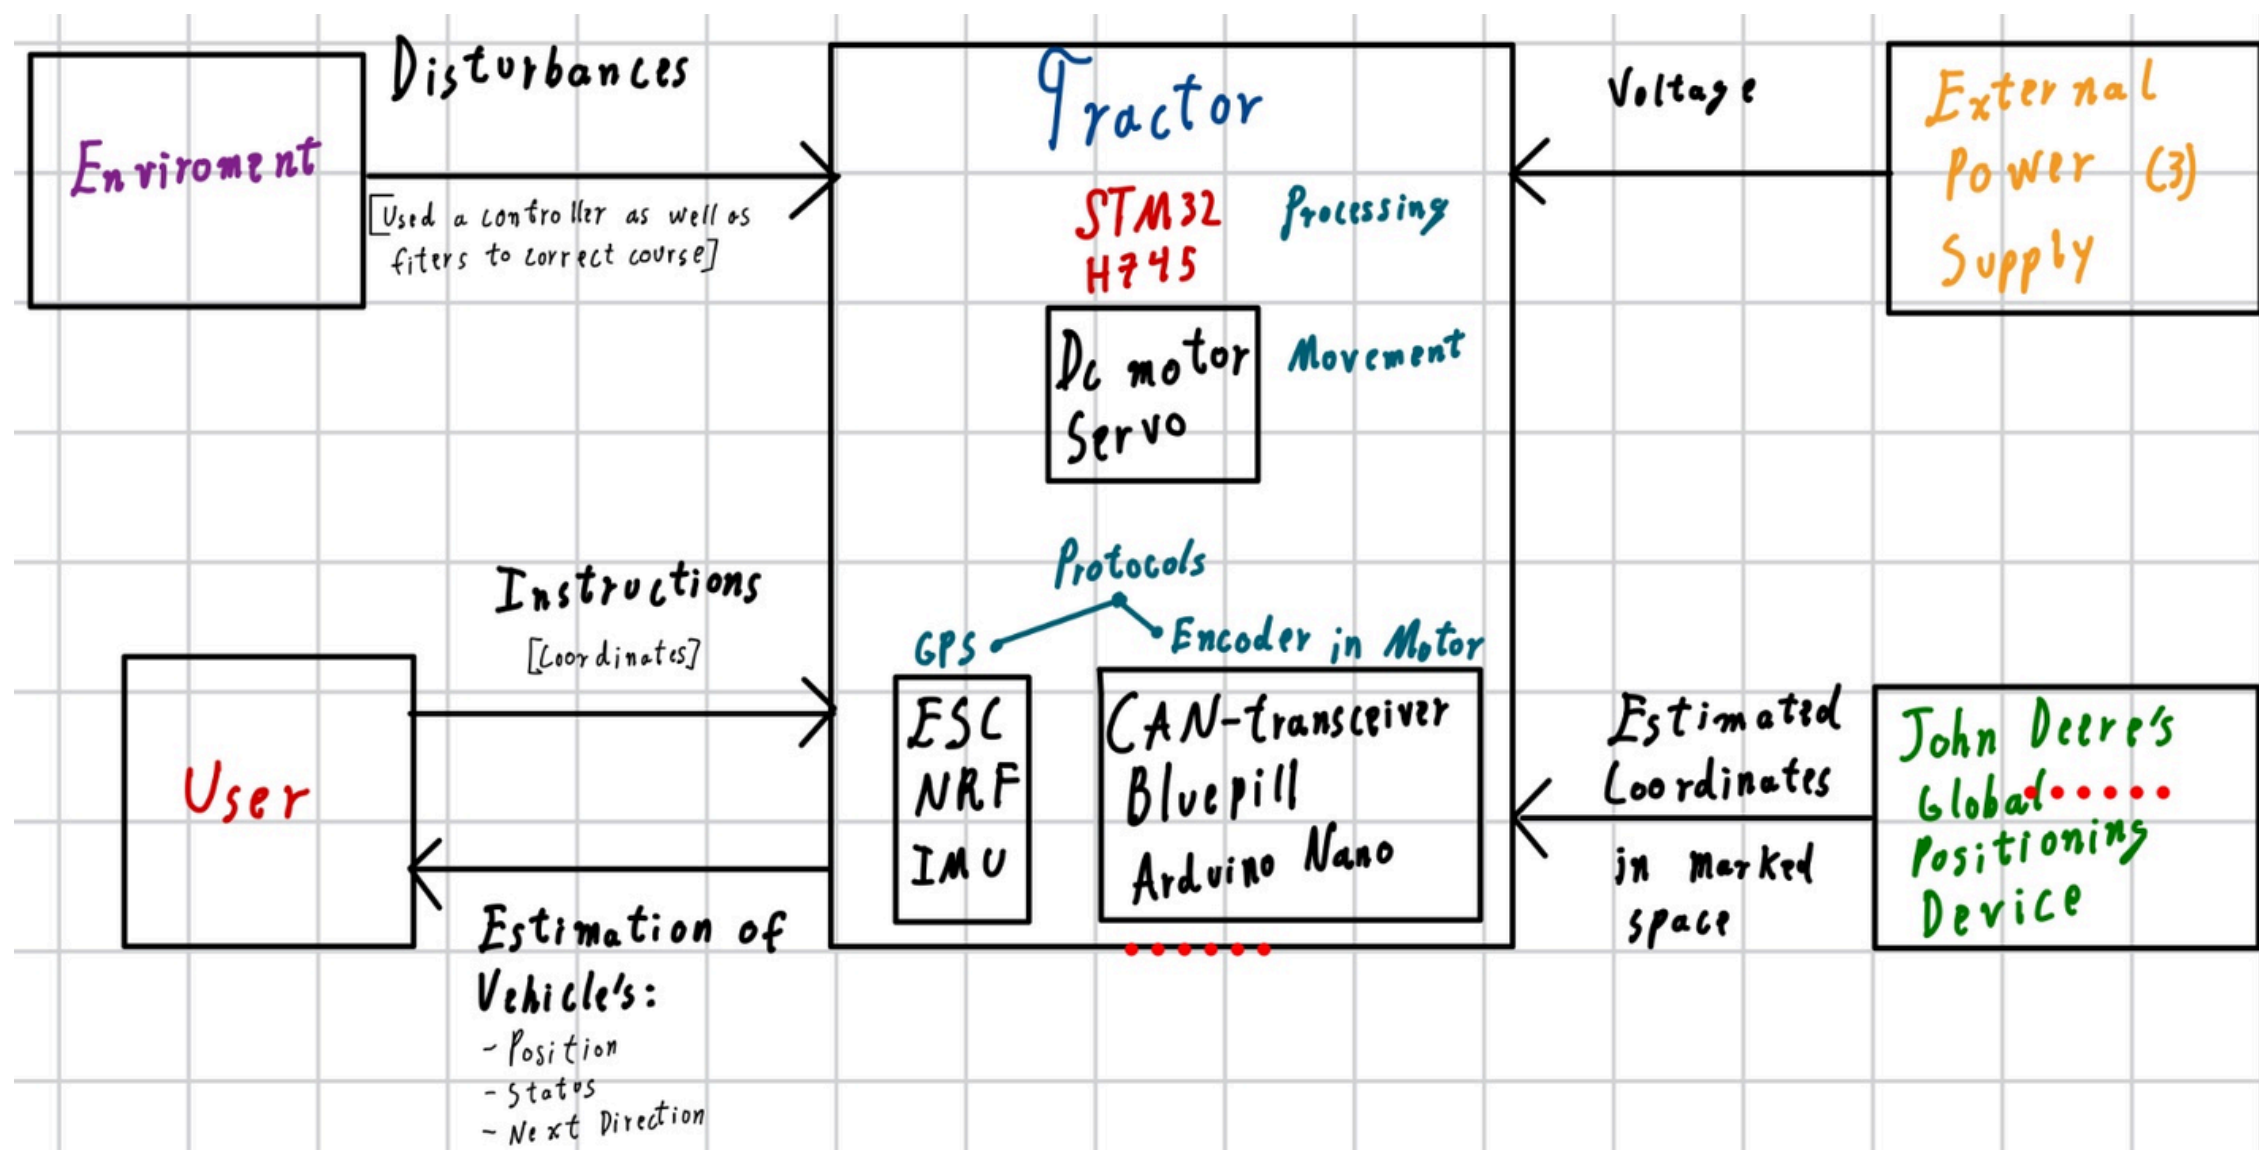 Enviroment
Disturbances
[Used a controller as well as
fiters to correct course]
Tractor
STM32
H745
Processing
Dc motor
Servo
Movement
Voltage
External
Power (3)
Supply
Protocols
GPS
Encoder in Motor
ESC
NRF
IMU
CAN-transceiver
Bluepill
Arduino Nano
User
Instructions
[Coordinates]
Estimation of
Vehicle's:
- Position
- Status
- Next Direction
Estimated
Coordinates
in marked
space
John Deere's
Global
Positioning
Device